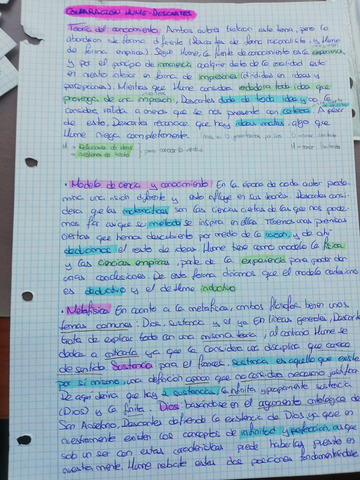 COMPARACIÓN HUME-DESCARTES
Teoría del conocimiento: Ambos autores tratan este tema, pero lo
abordan de forma diferente (Descartes de forma racionalista, y Hume
de forma empírica). Según Hume, la fuente de conocimiento es la experiencia
y por el principio de inmanencia cualquier dato de la realidad está
en nuestro interior en forma de impresiones (divididas en ideas y
percepciones). Mientras que Hume considera verdadera toda idea que
provenga de una impresión, Descartes duda de toda idea y no la
considera válida a menos que se nos presente con certeza. A pesar
de esto, Descartes reconoce que hay ideas innatas, algo que
Hume niega completamente.
H → Relaciones de ideas
cuestiones de hecho
para conocer
· Modelo de ciencia y conocimiento: En la época de cada autor predo-
mina una visión diferente y esto influye en sus teorías. Descartes consi-
dera que las matemáticas son las ciencias ciertas de las que nos pode-
mos fiar así que su método se inspira en ellas. Tenemos unas premisas
ciertas que hemos descubierto por medio de la razón, y de ahí
deducimos el resto de ideas. Hume tiene como modelo la física
y las ciencias empíricas, parte de la experiencia para poder dar
unas condiciones. De esta forma diríamos que el modelo cartesiano
es deductivo y el de Hume inductivo
· Metafísica: En cuanto a la metafísica, ambos filósofos tienen unos
temas comunes: Dios, sustancia y el yo. En líneas generales, Descartes
trata de explicar todo con una misma teoría, al contrario Hume se
dedica a criticarla ya que la considera una disciplina que carece
de sentido. Sustancia: para el francés, sustancia es aquello que existe
por sí mismo, una definición que no considera necesario justificar.
De aquí deriva que hay 2 sustancias, la infinita y propiamente sustancia
(Dios) y la finita. Dios: basándose en el argumento ontológico de
San Anselmo, Descartes defiende la existencia de Dios ya que en
nuestra mente existen los conceptos de infinitud y perfección, así que
solo un ser con estas características puede haberlas puesto en
nuestra mente. Hume rebate estas dos posiciones fundamentándose